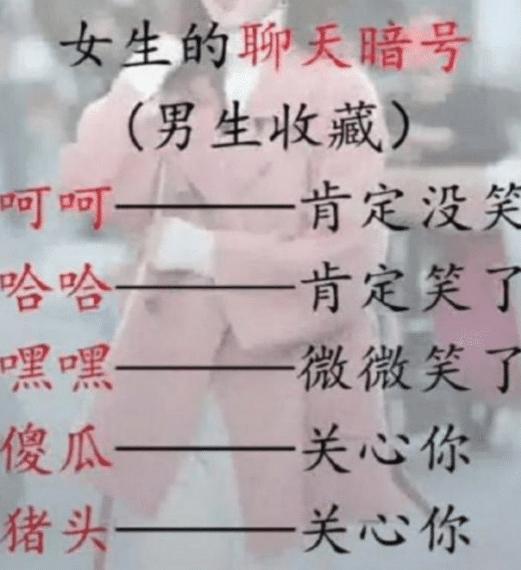 女生的聊天暗号
（男生收藏）
呵呵————肯定没笑
哈哈————肯定笑了
嘿嘿————微微笑了
傻瓜————关心你
猪头————关心你